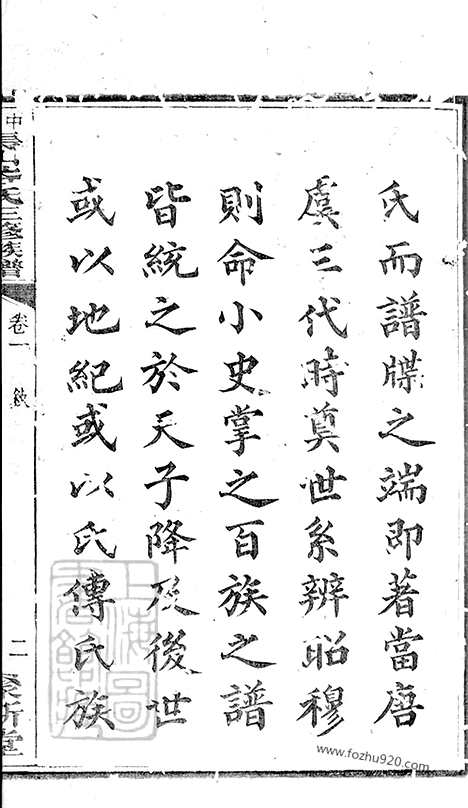 氏而譜牒之端即著當唐
虞三代時奠世系辨昭穆
則命小史掌之百族之譜
皆統之於天子降及後世
或以地紀或以氏傳氏族
中
氏三修族譜
卷一
敘
二
上海圖書館藏
www.fozhu920.com